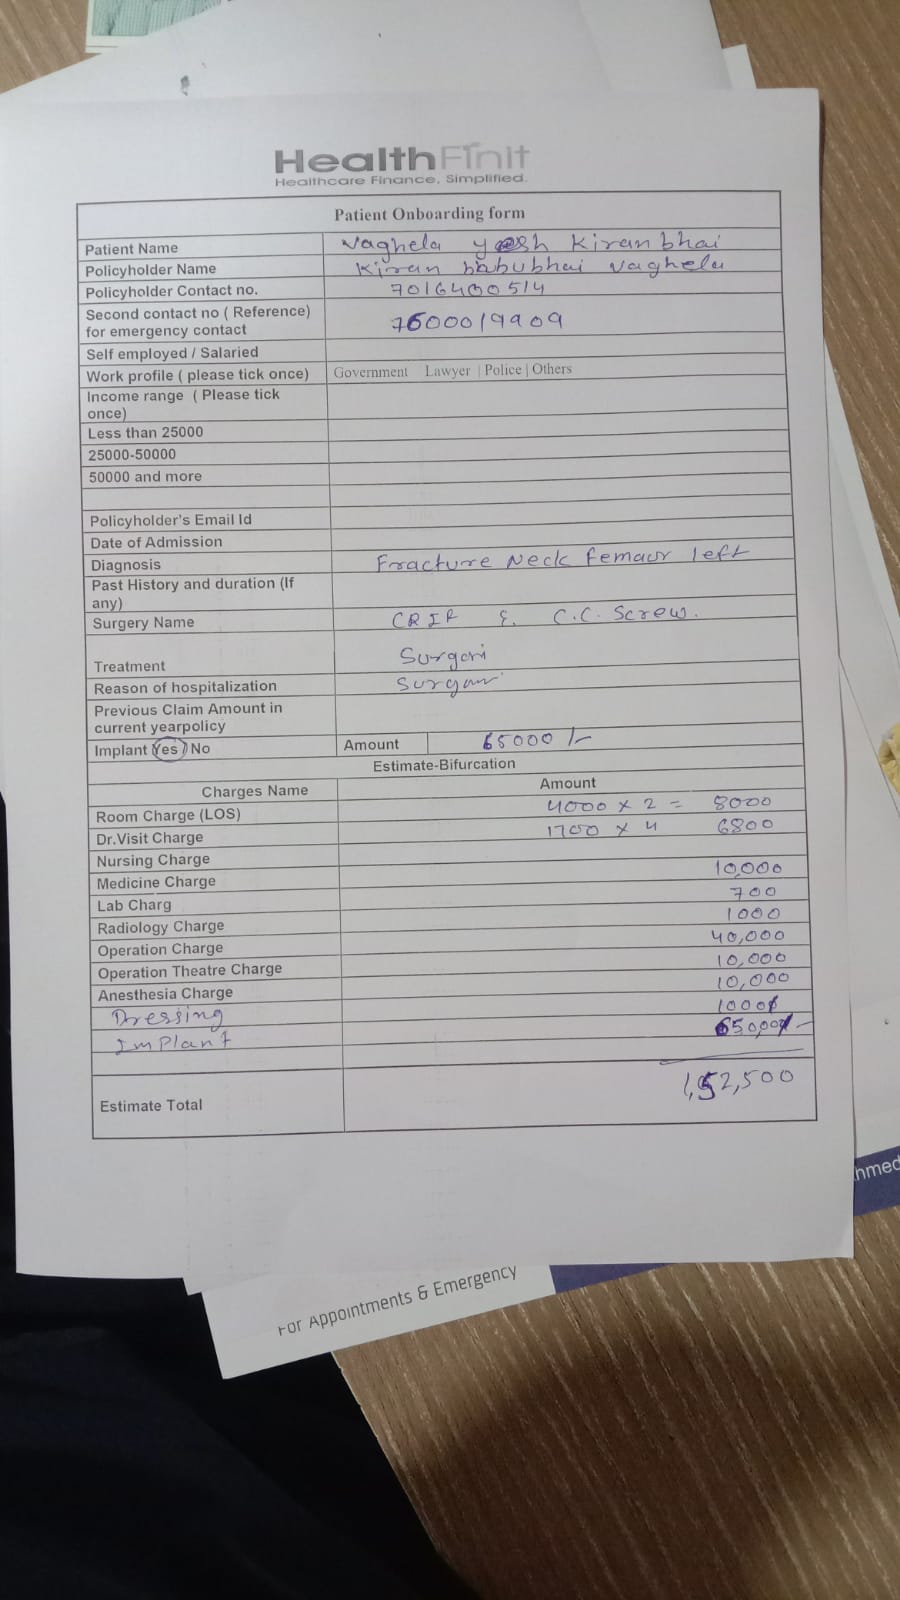 HealthFinit
Healthcare Finance, Simplified.
Patient Onboarding form
Patient Name Vaghela yash Kiranbhai
Policyholder Name Kiran babubhai vaghela
Policyholder Contact no. 7016400514
Second contact no ( Reference) for emergency contact 7600019909
Self employed / Salaried
Work profile ( please tick once) Government Lawyer | Police | Others
Income range ( Please tick once)
Less than 25000
25000-50000
50000 and more
Policyholder's Email Id
Date of Admission
Diagnosis Fracture Neck femaur left
Past History and duration (If any)
Surgery Name CRIF & C.C. Screw.
Treatment Surgari
Reason of hospitalization
Previous Claim Amount in current yearpolicy
Implant Yes / No Amount 65000/-
Estimate-Bifurcation
Charges Name Amount
Room Charge (LOS) 4000 x 2 = 8000
Dr.Visit Charge 1700 x 4 6800
Nursing Charge
Medicine Charge 10,000
Lab Charg 700
Radiology Charge 1000
Operation Charge 40,000
Operation Theatre Charge 10,000
Anesthesia Charge 10,000
Dressing 1000/
Implant 65000/-
Estimate Total 1,52,500
For Appointments & Emergency
hmed